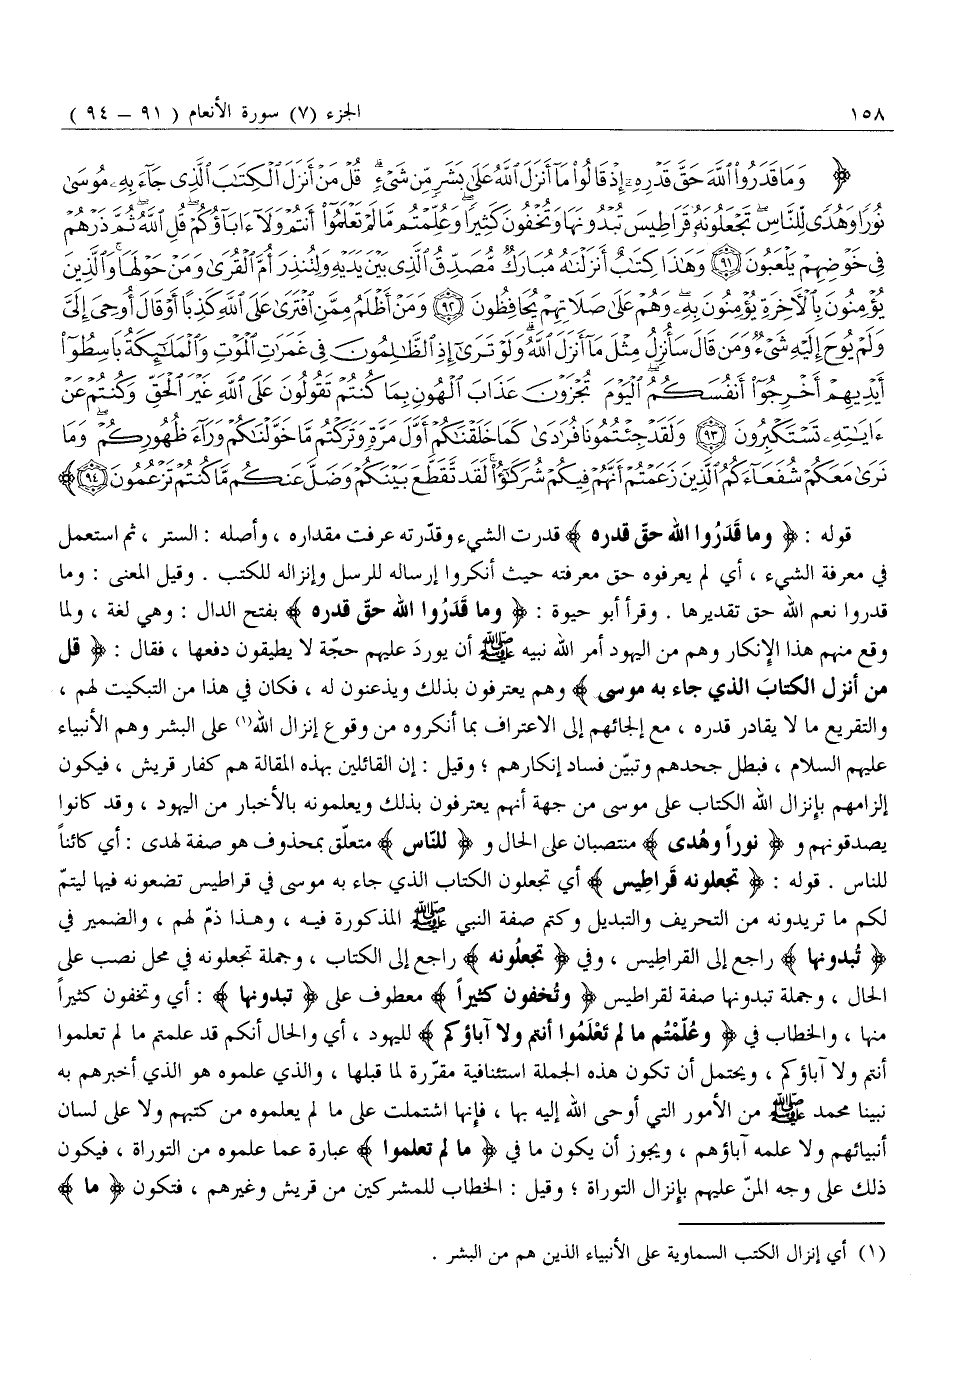 ١٥٨ الجزء (٧) سورة الأنعام ( ٩١ – ٩٤ )
﴿ وَمَا قَدَرُوا۟ ٱللَّهَ حَقَّ قَدْرِهِۦٓ إِذْ قَالُوا۟ مَآ أَنزَلَ ٱللَّهُ عَلَىٰ بَشَرٍ مِّن شَىْءٍ ۗ قُلْ مَنْ أَنزَلَ ٱلْكِتَٰبَ ٱلَّذِى جَآءَ بِهِۦ مُوسَىٰ
نُورًا وَهُدًى لِّلنَّاسِ ۖ تَجْعَلُونَهُۥ قَرَاطِيسَ تُبْدُونَهَا وَتُخْفُونَ كَثِيرًا ۖ وَعُلِّمْتُم مَّا لَمْ تَعْلَمُوٓا۟ أَنتُمْ وَلَآ ءَابَآؤُكُمْ ۖ قُلِ ٱللَّهُ ۖ ثُمَّ ذَرْهُمْ
فِى خَوْضِهِمْ يَلْعَبُونَ ٩١ وَهَٰذَا كِتَٰبٌ أَنزَلْنَٰهُ مُبَارَكٌ مُّصَدِّقُ ٱلَّذِى بَيْنَ يَدَيْهِ وَلِتُنذِرَ أُمَّ ٱلْقُرَىٰ وَمَنْ حَوْلَهَا ۚ وَٱلَّذِينَ
يُؤْمِنُونَ بِٱلْأَخِرَةِ يُؤْمِنُونَ بِهِۦ ۖ وَهُمْ عَلَىٰ صَلَاتِهِمْ يُحَافِظُونَ ٩٢ وَمَنْ أَظْلَمُ مِمَّنِ ٱفْتَرَىٰ عَلَى ٱللَّهِ كَذِبًا أَوْ قَالَ أُوحِىَ إِلَىَّ
وَلَمْ يُوحَ إِلَيْهِ شَىْءٌ وَمَن قَالَ سَأُنزِلُ مِثْلَ مَآ أَنزَلَ ٱللَّهُ ۗ وَلَوْ تَرَىٰٓ إِذِ ٱلظَّٰلِمُونَ فِى غَمَرَٰتِ ٱلْمَوْتِ وَٱلْمَلَٰٓئِكَةُ بَاسِطُوٓا۟
أَيْدِيهِمْ أَخْرِجُوٓا۟ أَنفُسَكُمُ ۖ ٱلْيَوْمَ تُجْزَوْنَ عَذَابَ ٱلْهُونِ بِمَا كُنتُمْ تَقُولُونَ عَلَى ٱللَّهِ غَيْرَ ٱلْحَقِّ وَكُنتُمْ عَنْ
ءَايَٰتِهِۦ تَسْتَكْبِرُونَ ٩٣ وَلَقَدْ جِئْتُمُونَا فُرَٰدَىٰ كَمَا خَلَقْنَٰكُمْ أَوَّلَ مَرَّةٍ وَتَرَكْتُم مَّا خَوَّلْنَٰكُمْ وَرَآءَ ظُهُورِكُمْ ۖ وَمَا
نَرَىٰ مَعَكُمْ شُفَعَآءَكُمُ ٱلَّذِينَ زَعَمْتُمْ أَنَّهُمْ فِيكُمْ شُرَكَٰٓؤُا۟ ۚ لَقَد تَّقَطَّعَ بَيْنَكُمْ وَضَلَّ عَنكُم مَّا كُنتُمْ تَزْعُمُونَ ٩٤ ﴾
قوله : ﴿ وما قَدَرُوا الله حقّ قدره ﴾ قدرت الشيء وقدّرته عرفت مقداره ، وأصله : الستر ، ثم استعمل
في معرفة الشيء ، أي لم يعرفوه حق معرفته حيث أنكروا إرساله للرسل وإنزاله للكتب . وقيل المعنى : وما
قدروا نعم الله حق تقديرها . وقرأ أبو حيوة : ﴿ وما قَدَرُوا الله حقّ قدره ﴾ بفتح الدال : وهي لغة ، ولما
وقع منهم هذا الإنكار وهم من اليهود أمر الله نبيه ﷺ أن يوردَ عليهم حجّة لا يطيقون دفعها ، فقال : ﴿ قل
من أنزل الكتابَ الذي جاء به موسى ﴾ وهم يعترفون بذلك ويذعنون له ، فكان في هذا من التبكيت لهم ،
والتقريع ما لا يقادر قدره ، مع إلجائهم إلى الاعتراف بما أنكروه من وقوع إنزال الله(١) على البشر وهم الأنبياء
عليهم السلام ، فبطل جحدهم وتبيّن فساد إنكارهم ؛ وقيل : إن القائلين بهذه المقالة هم كفار قريش ، فيكون
إلزامهم بإنزال الله الكتاب على موسى من جهة أنهم يعترفون بذلك ويعلمونه بالأخبار من اليهود ، وقد كانوا
يصدقونهم و ﴿ نوراً وهُدى ﴾ منتصبان على الحال و ﴿ للنّاس ﴾ متعلّق بمحذوف هو صفة لهدى : أي كائناً
للناس . قوله : ﴿ تجعلونه قَراطِيس ﴾ أي تجعلون الكتاب الذي جاء به موسى في قراطيس تضعونه فيها ليتمّ
لكم ما تريدونه من التحريف والتبديل وكتم صفة النبي ﷺ المذكورة فيه ، وهذا ذمّ لهم ، والضمير في
﴿ تُبدونها ﴾ راجع إلى القراطِيس ، وفي ﴿ تجعلُونه ﴾ راجع إلى الكتاب ، وجملة تجعلونه في محل نصب على
الحال ، وجملة تبدونها صفة لقراطيس ﴿ وتُخفون كثيراً ﴾ معطوف على ﴿ تبدونها ﴾ : أي وتخفون كثيراً
منها ، والخطاب في ﴿ وعُلّمْتُم ما لم تَعْلَمُوا أنتم ولا آباؤكم ﴾ لليهود ، أي والحال أنكم قد علمتم ما لم تعلموا
أنتم ولا آباؤكم ، ويحتمل أن تكون هذه الجملة استئنافية مقرّرة لما قبلها ، والذي علموه هو الذي أخبرهم به
نبينا محمد ﷺ من الأمور التي أوحى الله إليه بها ، فإنها اشتملت على ما لم يعلموه من كتبهم ولا على لسان
أنبيائهم ولا علمه آباؤهم ، ويجوز أن يكون ما في ﴿ ما لم تعلموا ﴾ عبارة عما علموه من التوراة ، فيكون
ذلك على وجه المنّ عليهم بإنزال التوراة ؛ وقيل : الخطاب للمشركين من قريش وغيرهم ، فتكون ﴿ ما ﴾
(١) أي إنزال الكتب السماوية على الأنبياء الذين هم من البشر .